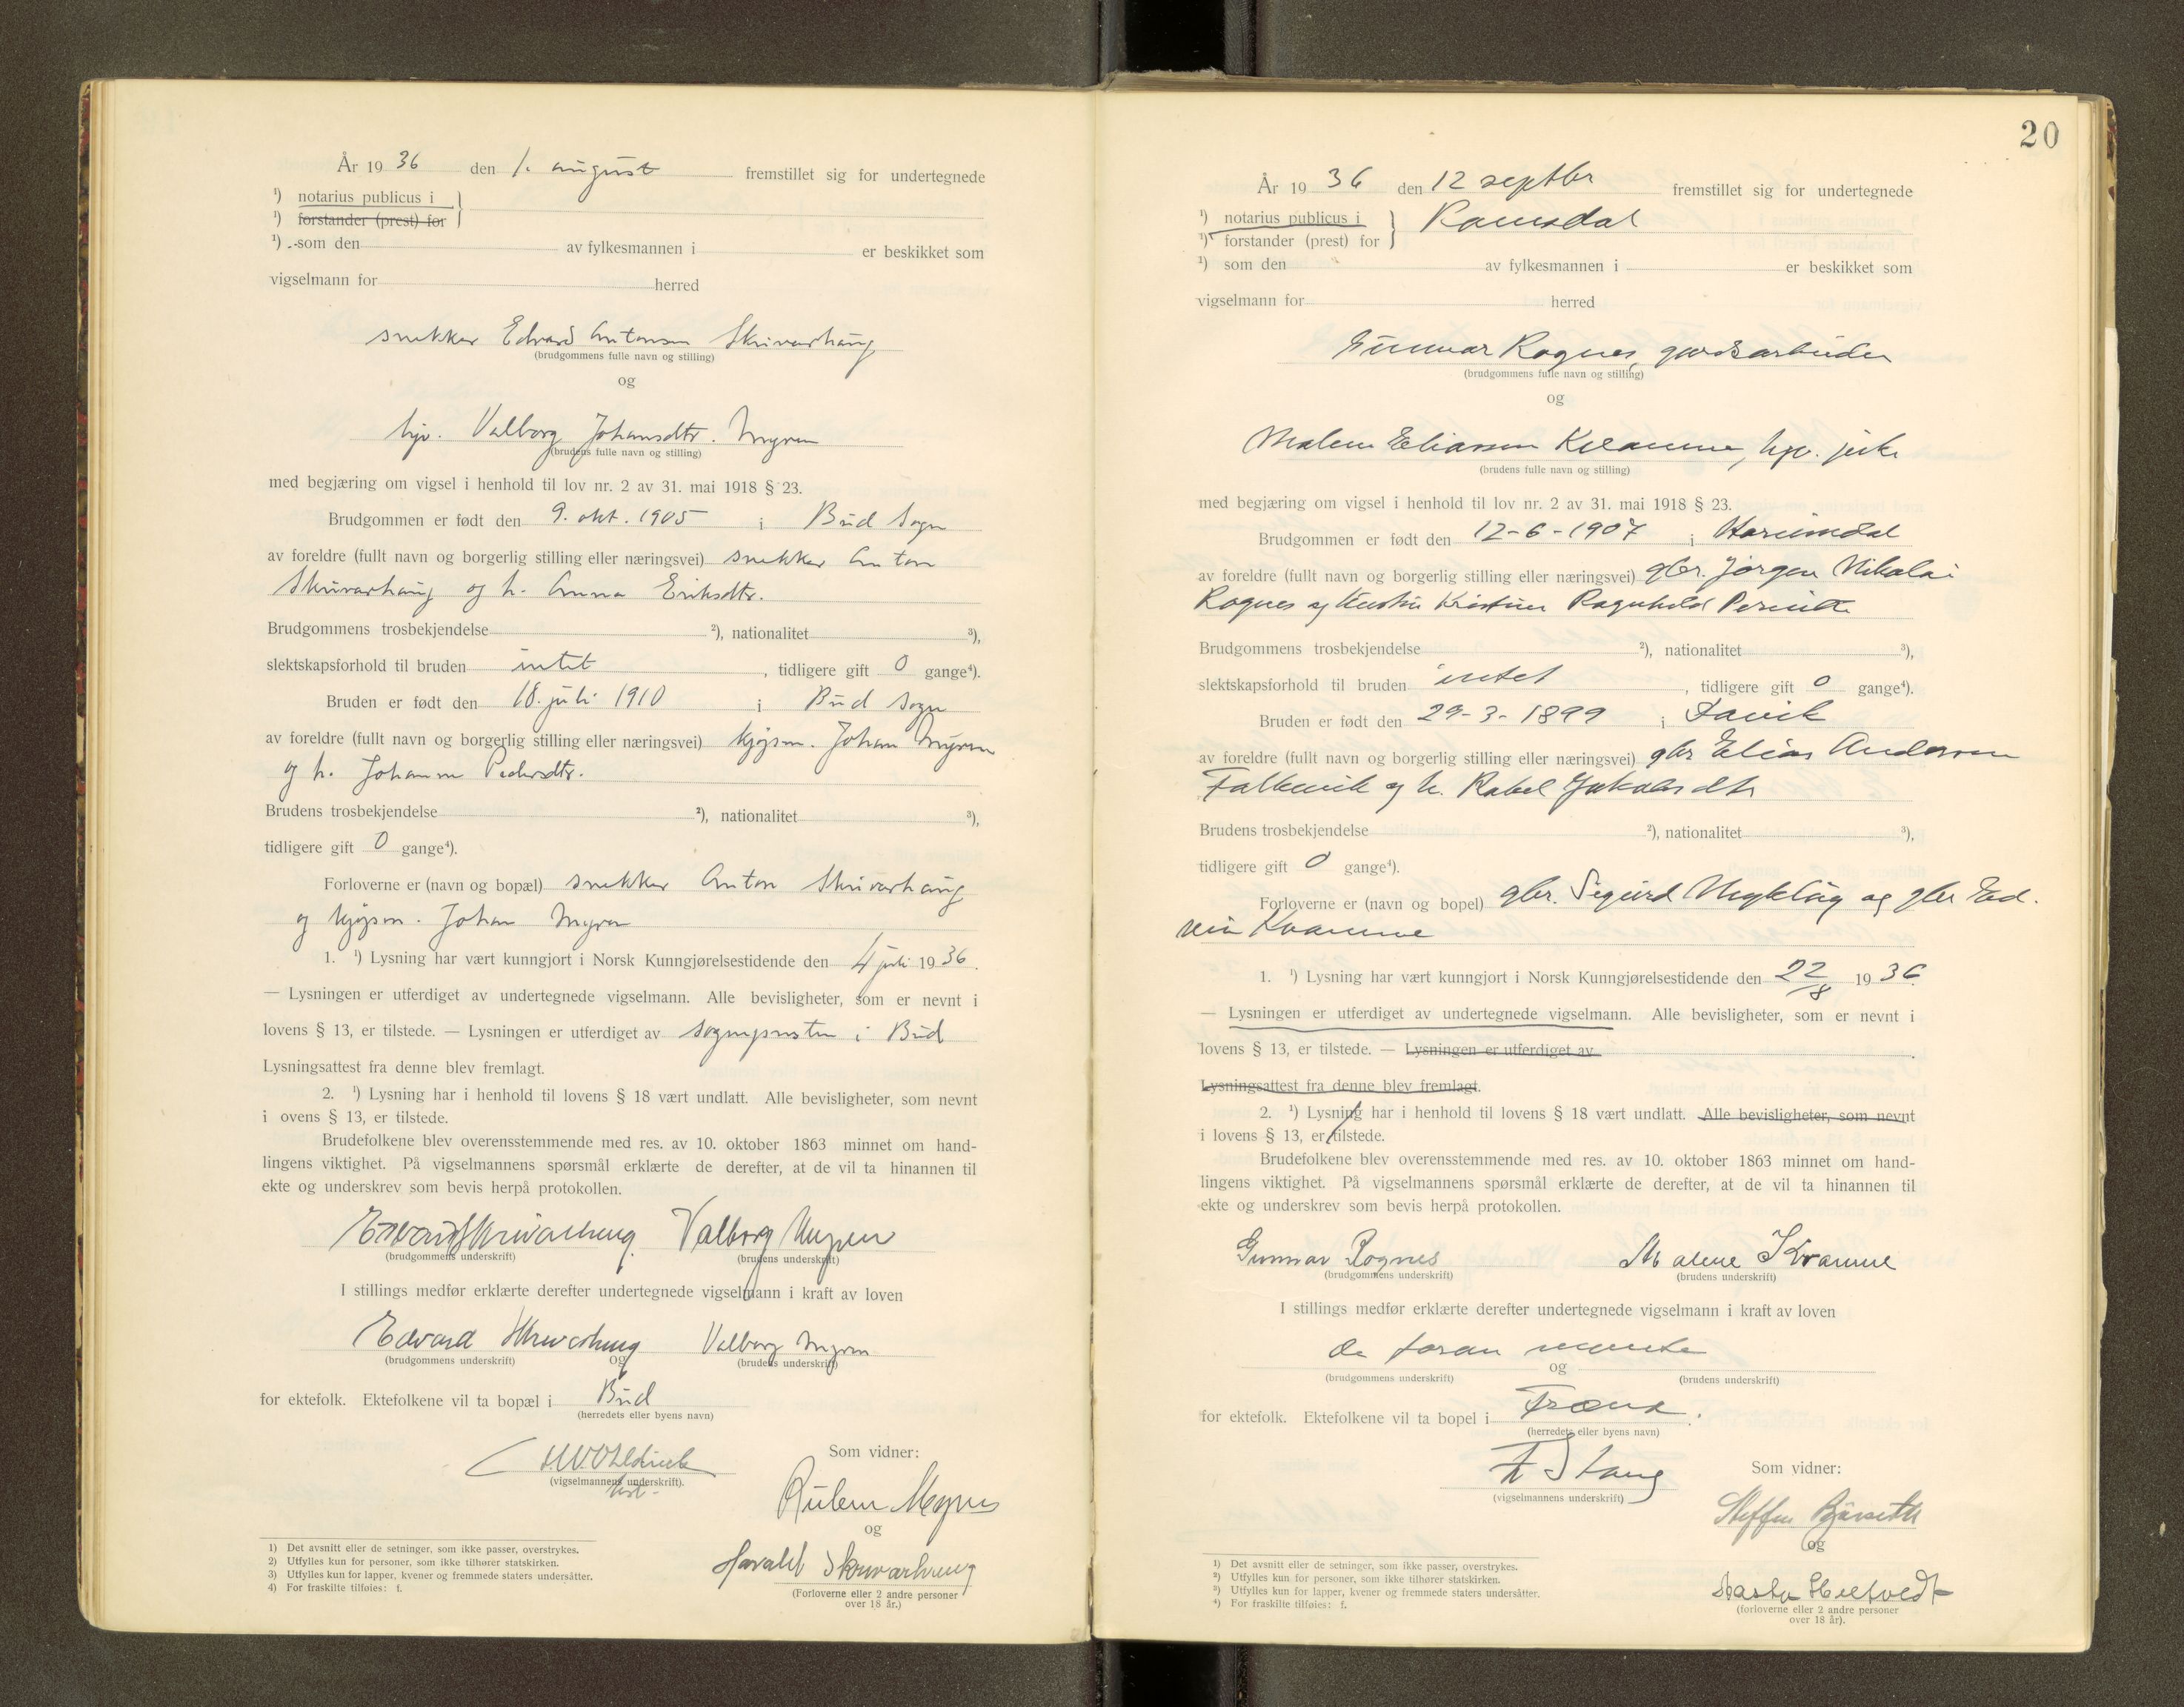 År 19 36 den 1. august fremstillet sig for undertegnede
¹) notarius publicus i }
¹) forstander (prest) for
¹) som den av fylkesmannen i er beskikket som
vigselmann for herred
snekker Edvard Antonsen Skrivarhaug
(brudgommens fulle navn og stilling)
og
hjv. Valborg Johansdtr. Myren
(brudens fulle navn og stilling)
med begjæring om vigsel i henhold til lov nr. 2 av 31. mai 1918 § 23.
Brudgommen er født den 9. okt. 1905 i Bud sogn
av foreldre (fullt navn og borgerlig stilling eller næringsvei) snekker Anton
Skrivarhaug og h. Anna Eriksdtr.
Brudgommens trosbekjendelse ²), nationalitet ³),
slektskapsforhold til bruden intet , tidligere gift 0 gange⁴).
Bruden er født den 18. juli 1910 i Bud sogn
av foreldre (fullt navn og borgerlig stilling eller næringsvei) kjøpm. Johan Myren
og h. Johanna Pedersdtr.
Brudens trosbekjendelse ²), nationalitet ³),
tidligere gift 0 gange⁴).
Forloverne er (navn og bopæl) snekker Anton Skrivarhaug
og kjøpm. Johan Myren
1. ¹) Lysning har vært kunngjort i Norsk Kunngjørelsestidende den 4 juli 19 36.
— Lysningen er utferdiget av undertegnede vigselmann. Alle bevisligheter, som er nevnt i
lovens § 13, er tilstede. — Lysningen er utferdiget av sognepresten i Bud
Lysningsattest fra denne blev fremlagt.
2. ¹) Lysning har i henhold til lovens § 18 vært undlatt. Alle bevisligheter, som nevnt
i ovens § 13, er tilstede.
Brudefolkene blev overensstemmende med res. av 10. oktober 1863 minnet om hand-
lingens viktighet. På vigselmannens spørsmål erklærte de derefter, at de vil ta hinannen til
ekte og underskrev som bevis herpå protokollen.
Edvard Skrivarhaug Valborg Myren
(brudgommens underskrift) (brudens underskrift)
I stillings medfør erklærte derefter undertegnede vigselmann i kraft av loven
Edvard Skrivarhaug Valborg Myren
(brudgommens underskrift) og (brudens underskrift)
for ektefolk. Ektefolkene vil ta bopæl i Bud
(herredets eller byens navn)
Som vidner:
(vigselmannens underskrift).
og
Harald Skrivarhaug
(Forloverne eller 2 andre personer
over 18 år.)
1) Det avsnitt eller de setninger, som ikke passer, overstrykes.
2) Utfylles kun for personer, som ikke tilhører statskirken.
3) Utfylles kun for lapper, kvener og fremmede staters undersåtter.
4) For fraskilte tilføies: f.
20
År 19 36 den 12 septbr fremstillet sig for undertegnede
¹) notarius publicus i } Romsdal
¹) forstander (prest) for
¹) som den av fylkesmannen i er beskikket som
vigselmann for herred
Gunnar Rognes, gardsarbeider
(brudgommens fulle navn og stilling)
og
Malene Eliassen Kvamme, hjv. jente
(brudens fulle navn og stilling)
med begjæring om vigsel i henhold til lov nr. 2 av 31. mai 1918 § 23.
Brudgommen er født den 12-6-1907 i
av foreldre (fullt navn og borgerlig stilling eller næringsvei) gbr. Jørgen Nikolai
Rognes og hustru Kristine Ragnhild Pernille
Brudgommens trosbekjendelse ²), nationalitet ³),
slektskapsforhold til bruden intet , tidligere gift 0 gange⁴).
Bruden er født den 29-3-1899 i Davik
av foreldre (fullt navn og borgerlig stilling eller næringsvei) gbr Elias Andersen
Falkevik og h. Rakel Jakobsdtr
Brudens trosbekjendelse ²), nationalitet ³),
tidligere gift 0 gange⁴).
Forloverne er (navn og bopel) gbr. Sigurd og gbr Ed.
vin Kvamme
1. ¹) Lysning har vært kunngjort i Norsk Kunngjørelsestidende den 22/8 19 36.
— Lysningen er utferdiget av undertegnede vigselmann. Alle bevisligheter, som er nevnt i
lovens § 13, er tilstede. — Lysningen er utferdiget av .
Lysningsattest fra denne blev fremlagt.
2. ¹) Lysning har i henhold til lovens § 18 vært undlatt. Alle bevisligheter, som nevnt
i lovens § 13, er tilstede.
Brudefolkene blev overensstemmende med res. av 10. oktober 1863 minnet om hand-
lingens viktighet. På vigselmannens spørsmål erklærte de derefter, at de vil ta hinannen til
ekte og underskrev som bevis herpå protokollen.
Gunnar Rognes Malene Kvamme
(brudgommens underskrift) (brudens underskrift)
I stillings medfør erklærte derefter undertegnede vigselmann i kraft av loven
de foran nevnte
og
(brudgommens underskrift) (brudens underskrift)
for ektefolk. Ektefolkene vil ta bopel i Fræna.
(herredets eller byens navn)
Stang Som vidner:
(vigselmannens underskrift)
Steffen
og
Aasta
(forloverne eller 2 andre personer
over 18 år).
¹) Det avsnitt eller de setninger, som ikke passer, overstrykes.
²) Utfylles kun for personer, som ikke tilhører statskirken.
³) Utfylles kun for lapper, kvener og fremmede staters undersåtter.
⁴) For fraskilte tilføies: f.